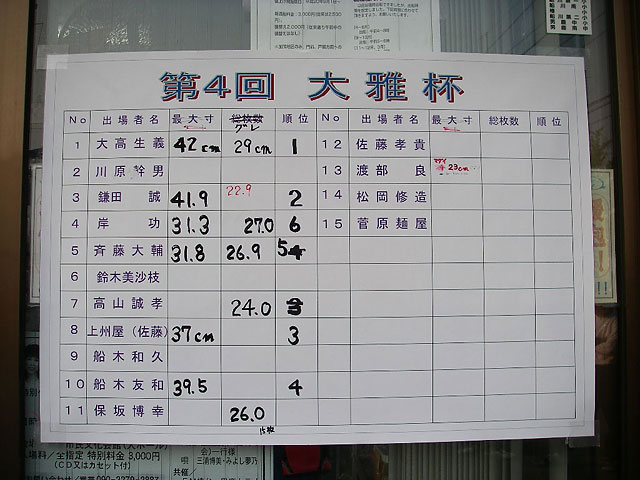 第4回 大雅杯
No 出場者名 最大寸 総枚数 グレ 順位
1 大高生義 42cm 29cm 1
2 川原幹男
3 鎌田 誠 41.9 22.9 2
4 岸 功 31.3 27.0 6
5 斉藤大輔 31.8 26.9 5
6 鈴木美沙枝
7 高山誠孝 24.0
8 上州屋(佐藤) 37cm 3
9 船木和久
10 船木友和 39.5 4
11 保坂博幸 26.0
No 出場者名 最大寸 総枚数 順位
12 佐藤孝貴
13 渡部 良 23cm
14 松岡修造
15 菅原麺屋
料/全指定 特別料金 3,000円
(CD又はカセット付)
三浦博美・みよし夢乃
共催/